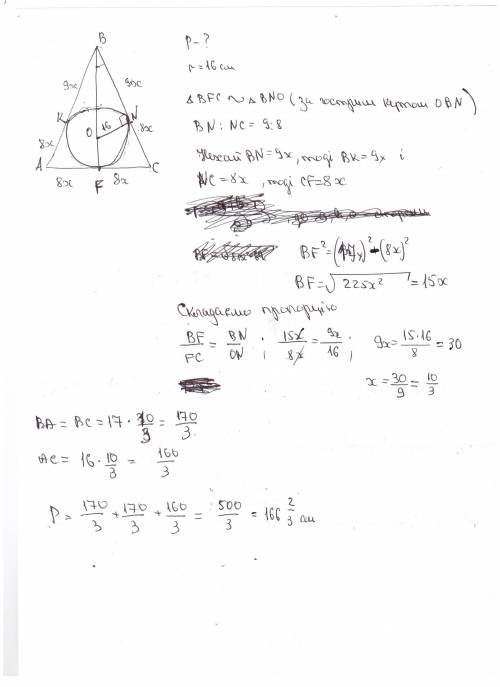 B
9x 9x
K N
O 16
8x 8x
A C
8x F 8x
P-?
r=16 см
△BFC ~ △BNO (за гострим кутом OBN)
BN : NC = 9:8
Нехай BN=9x, тоді BK=9x і
NC=8x, тоді CF=8x
BF² = (17x)² - (8x)²
BF = √225x² = 15x
Складаємо пропорцію
BF/FC = BN/ON ; 15x/8x = 9x/16 ; 9x = 15·16/8 = 30
x = 30/9 = 10/3
BA = BC = 17 · 10/3 = 170/3
AC = 16 · 10/3 = 160/3
P = 170/3 + 170/3 + 160/3 = 500/3 = 166 2/3 см